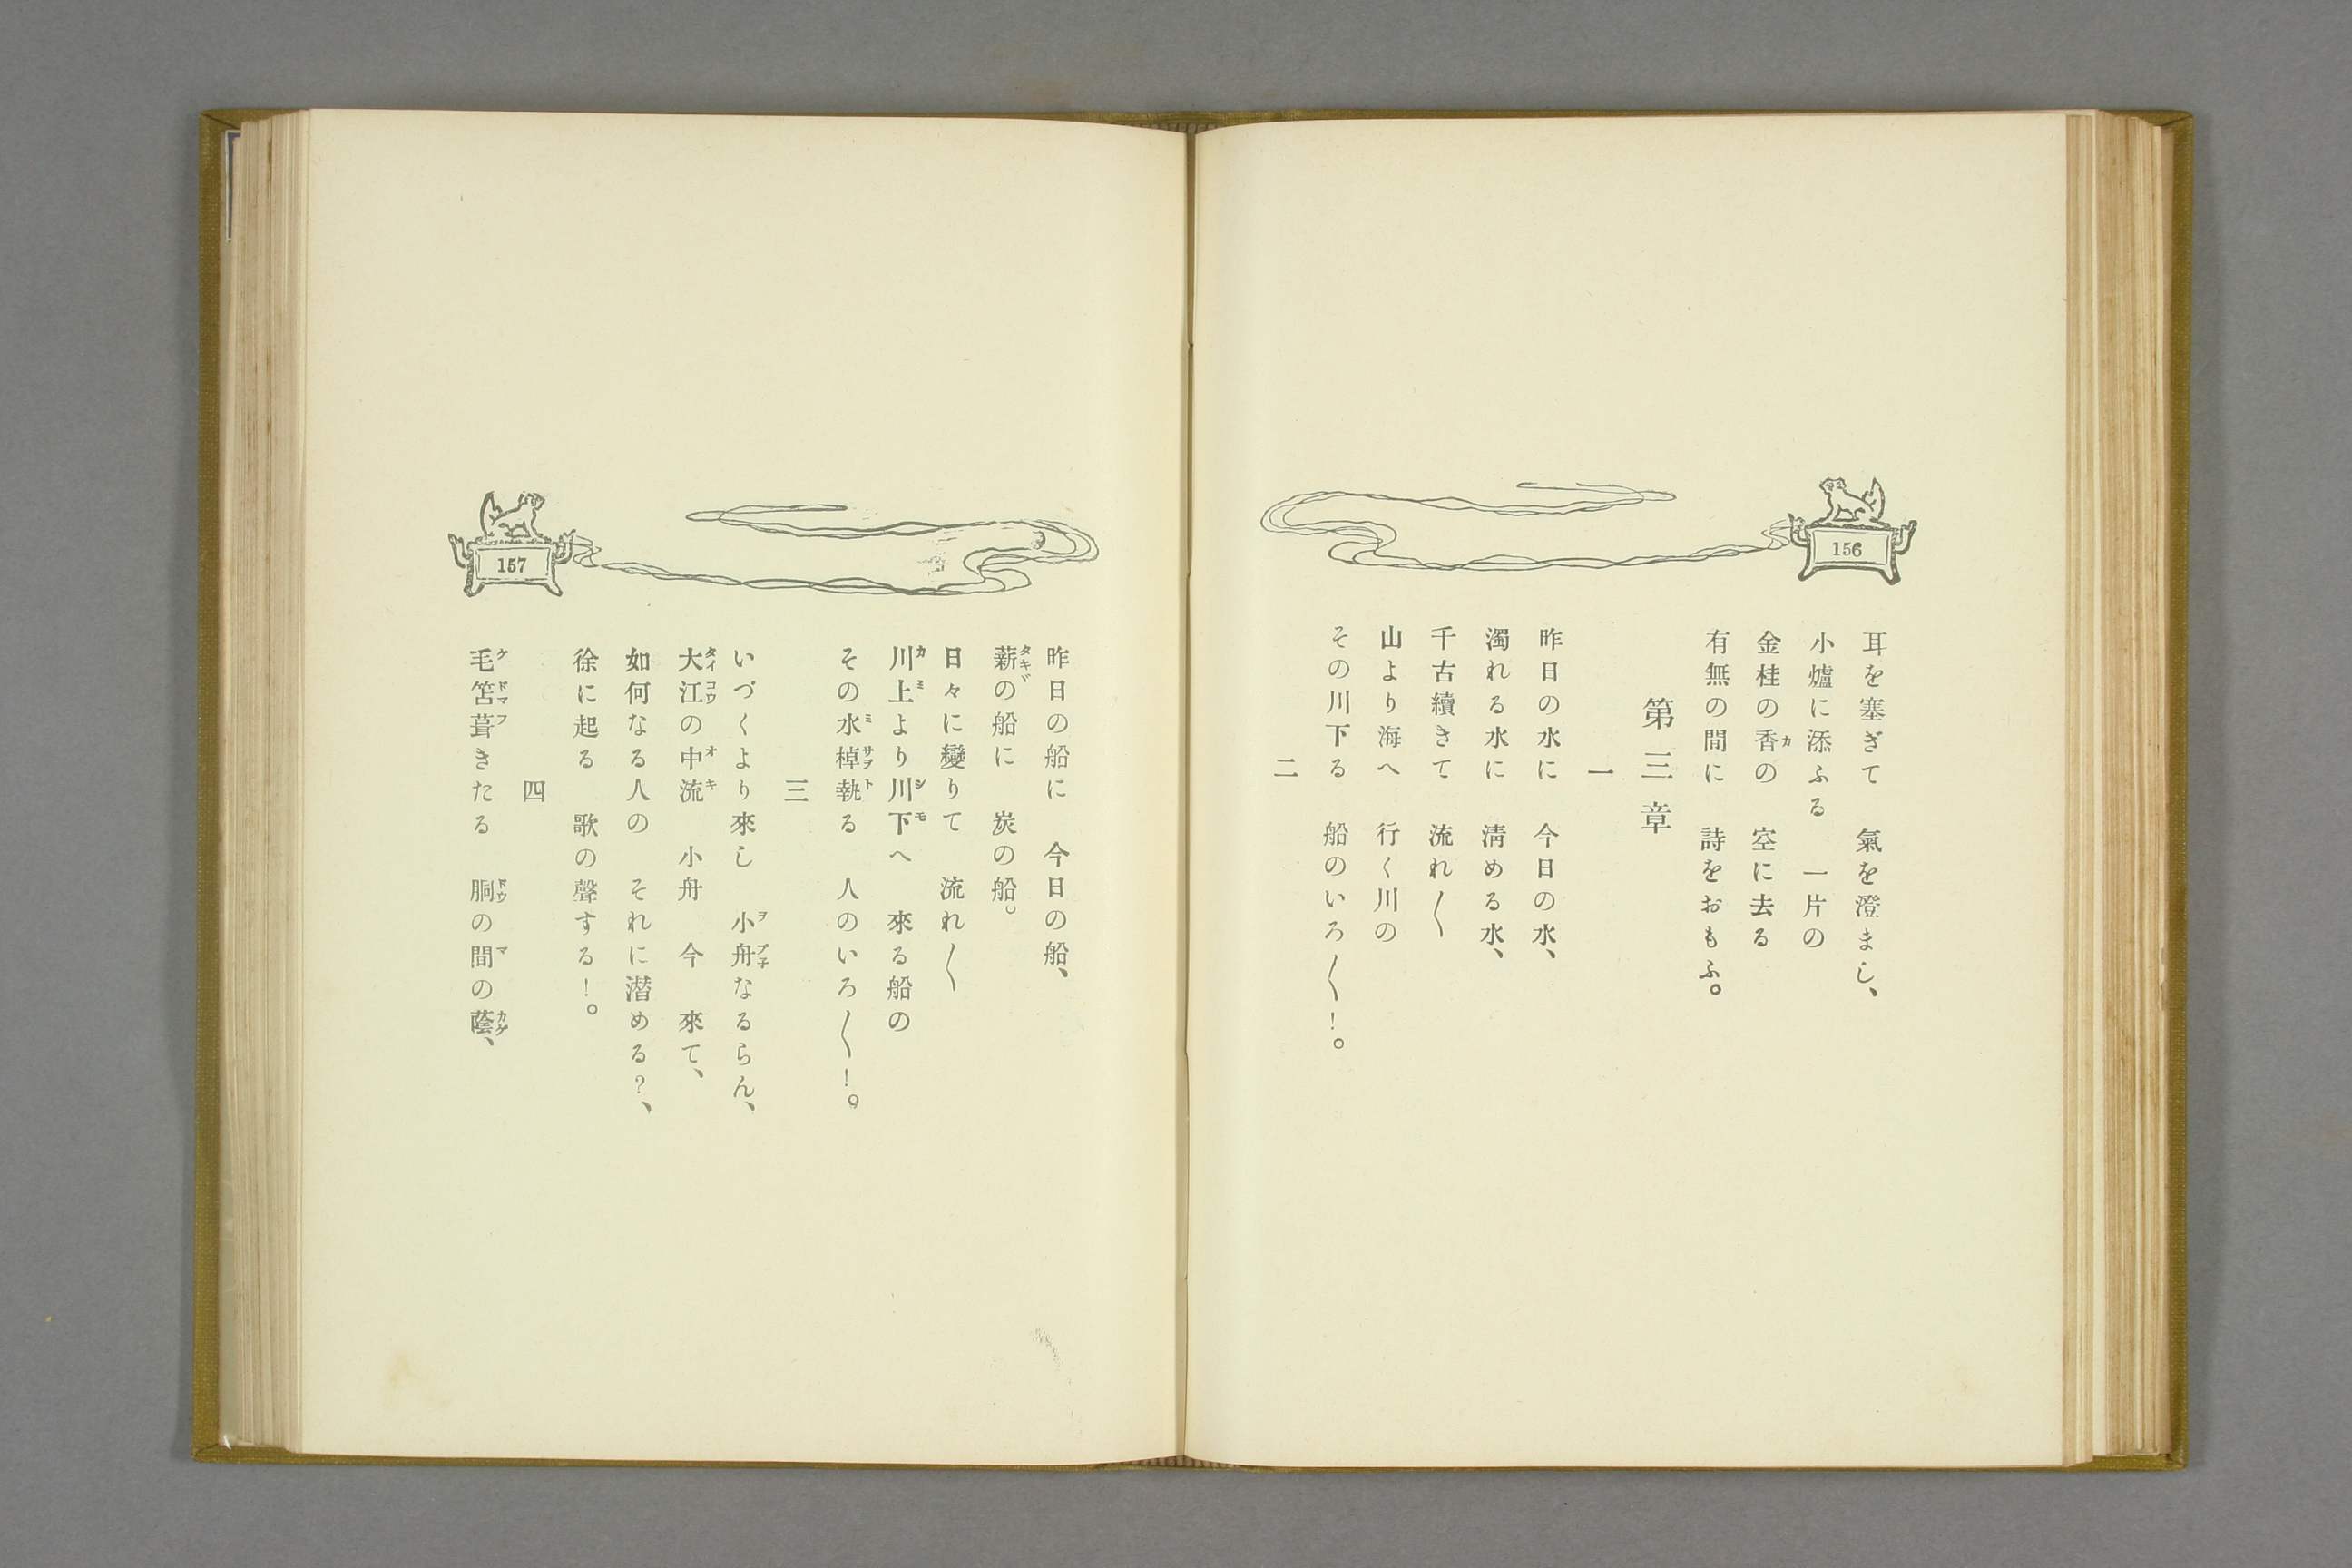 156
耳を塞ぎて　氣を澄まし、
小爐に添ふる　一片の
金桂の香の　空に去る
有無の間に　詩をおもふ。
第三章
一
昨日の水に　今日の水、
濁れる水に　淸める水、
千古續きて　流れ〱
山より海へ　行く川の
その川下る　船のいろ〱！。
二
157
昨日の船に　今日の船、
薪の船に　炭の船。
日々に變りて　流れ〱
川上より川下へ　來る船の
その水棹執る　人のいろ〱！。
三
いづくより來し　小舟なるらん、
大江の中流　小舟　今　來て、
如何なる人の　それに潜める？、
徐に起る　歌の聲する！。
四
毛笘葺きたる　胴の間の蔭、